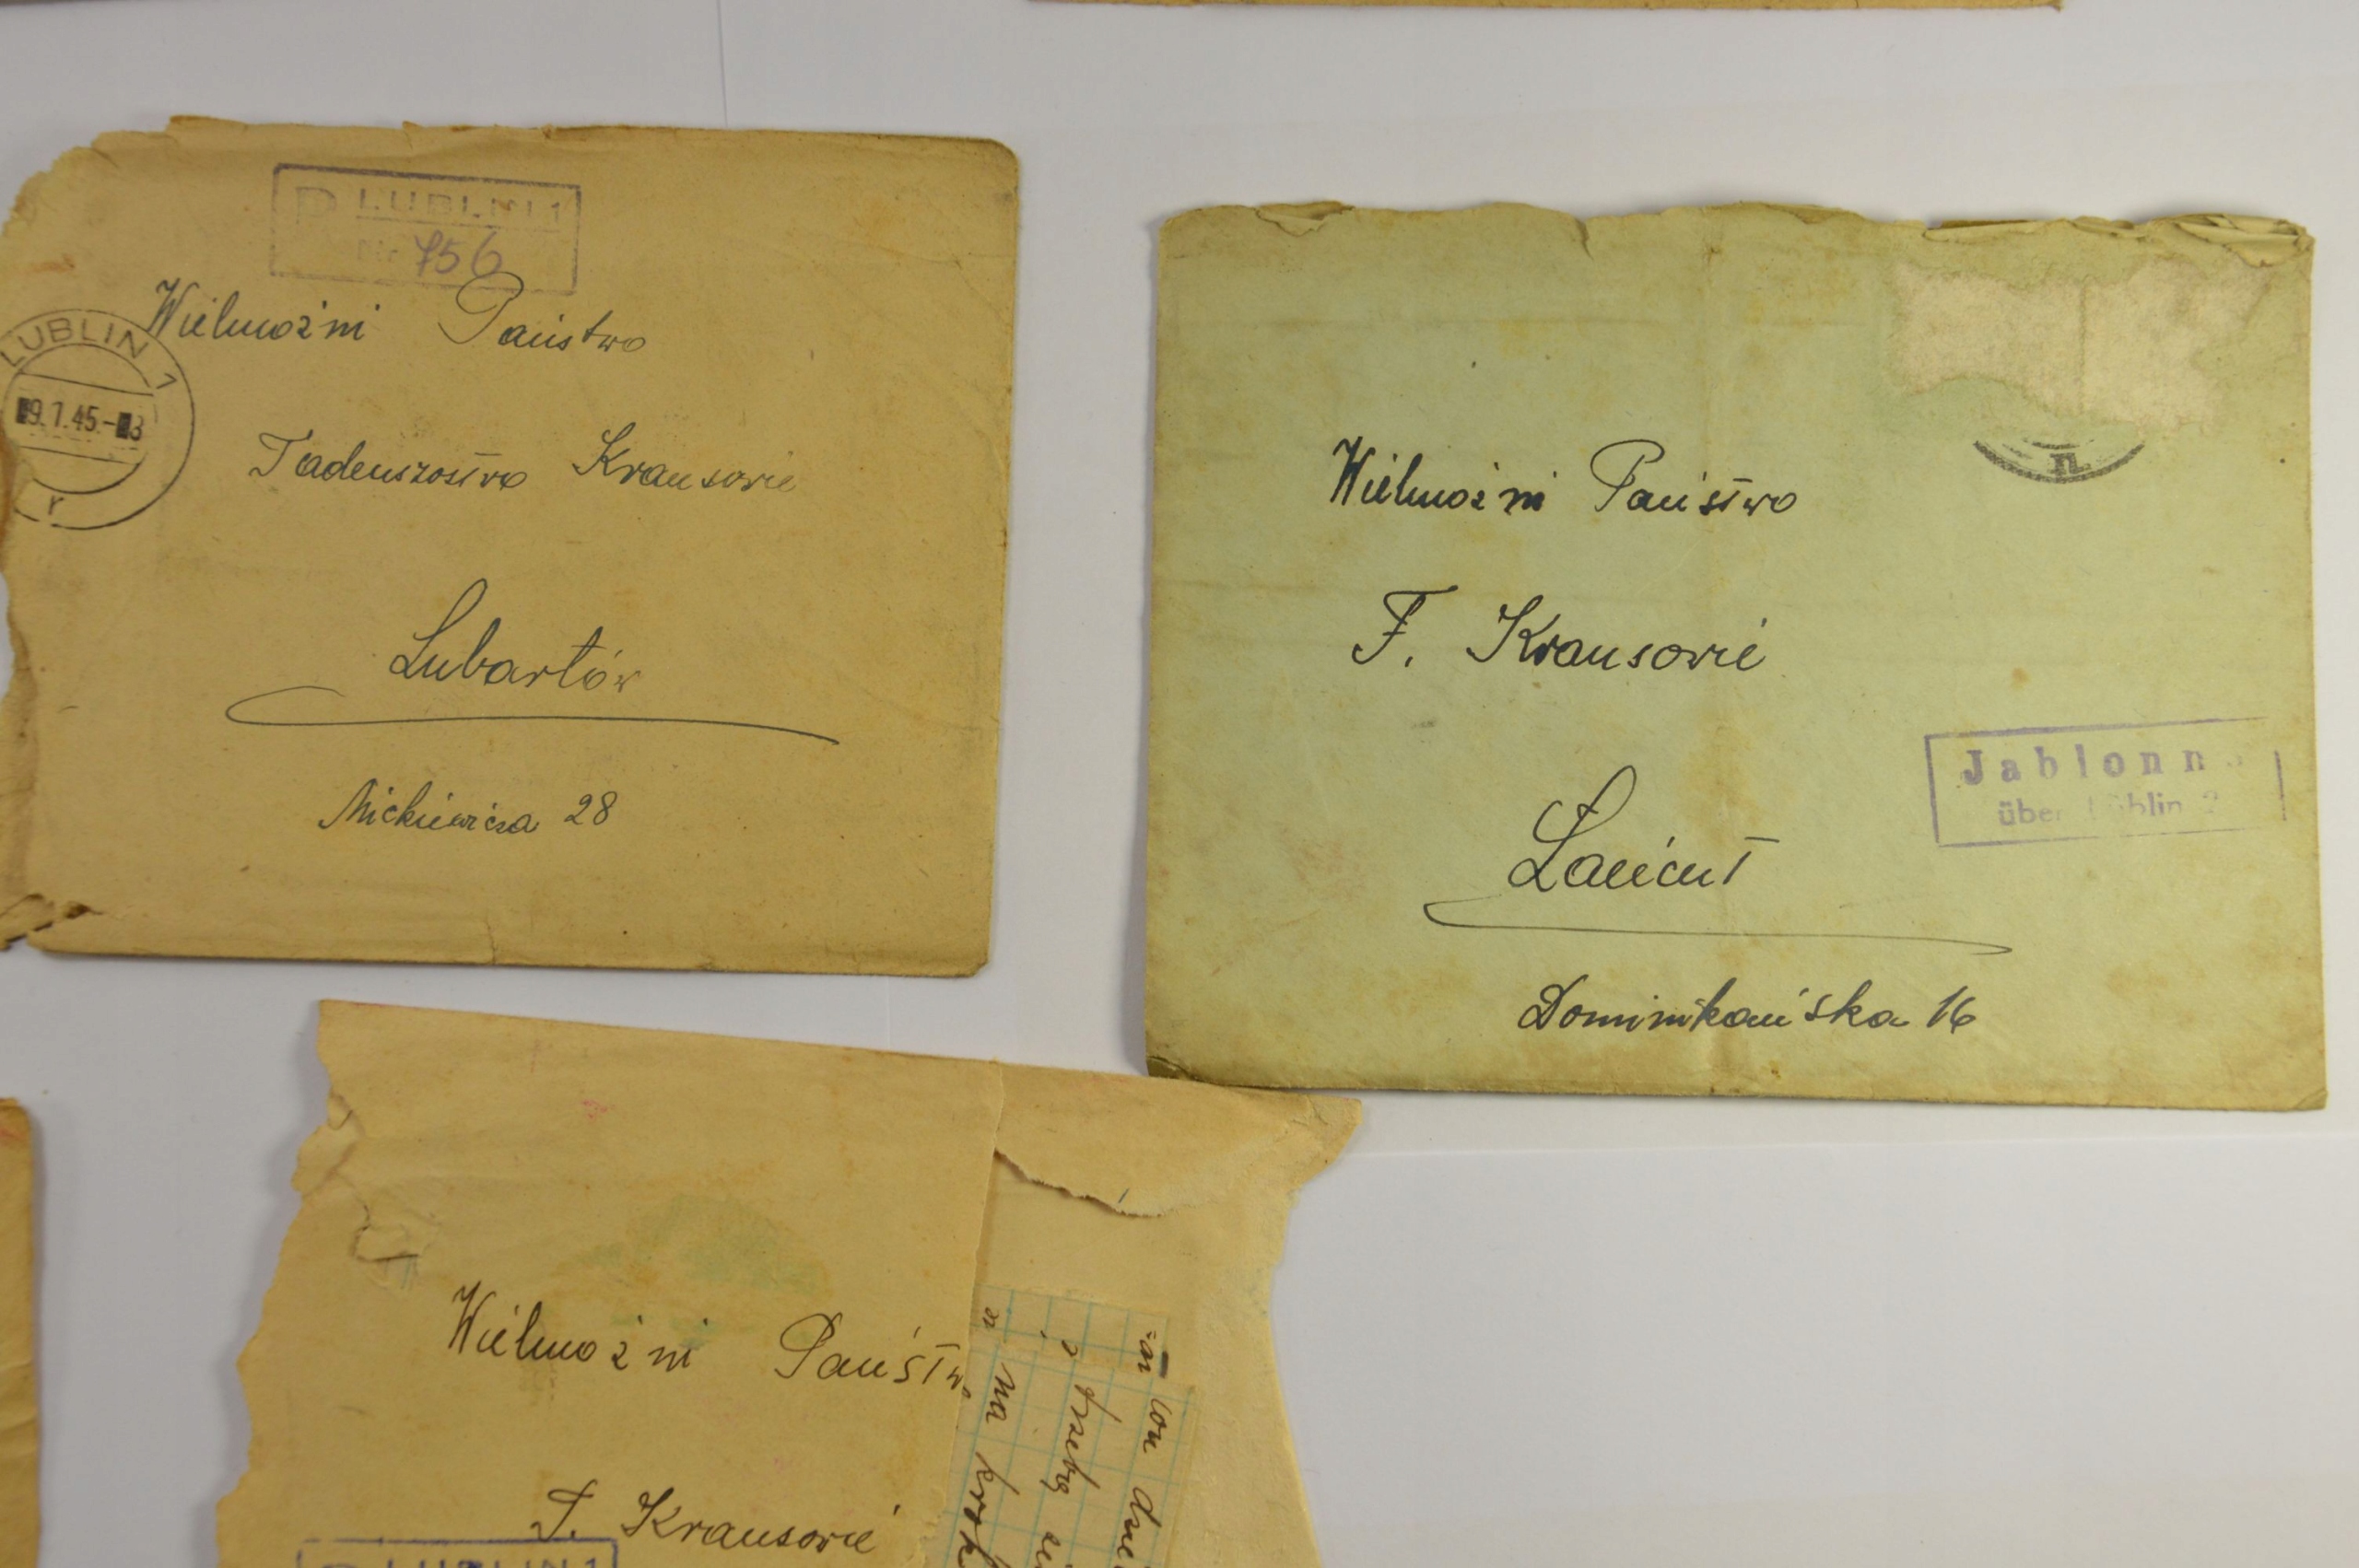 P LUBLIN 1
Nr 756
LUBLIN 1
9.7.45.-
r
Wielmożni Państwo
Tadeuszostwo Krausowie
Lubartów
Mickiewicza 28
n.
Wielmożni Państwo
F. Krausowie
Łańcut
Jablonna
über Lublin 2
Dominikańska 16
Wielmożni Państwo
T. Krausowie
LUBLIN 1
na
trzeba